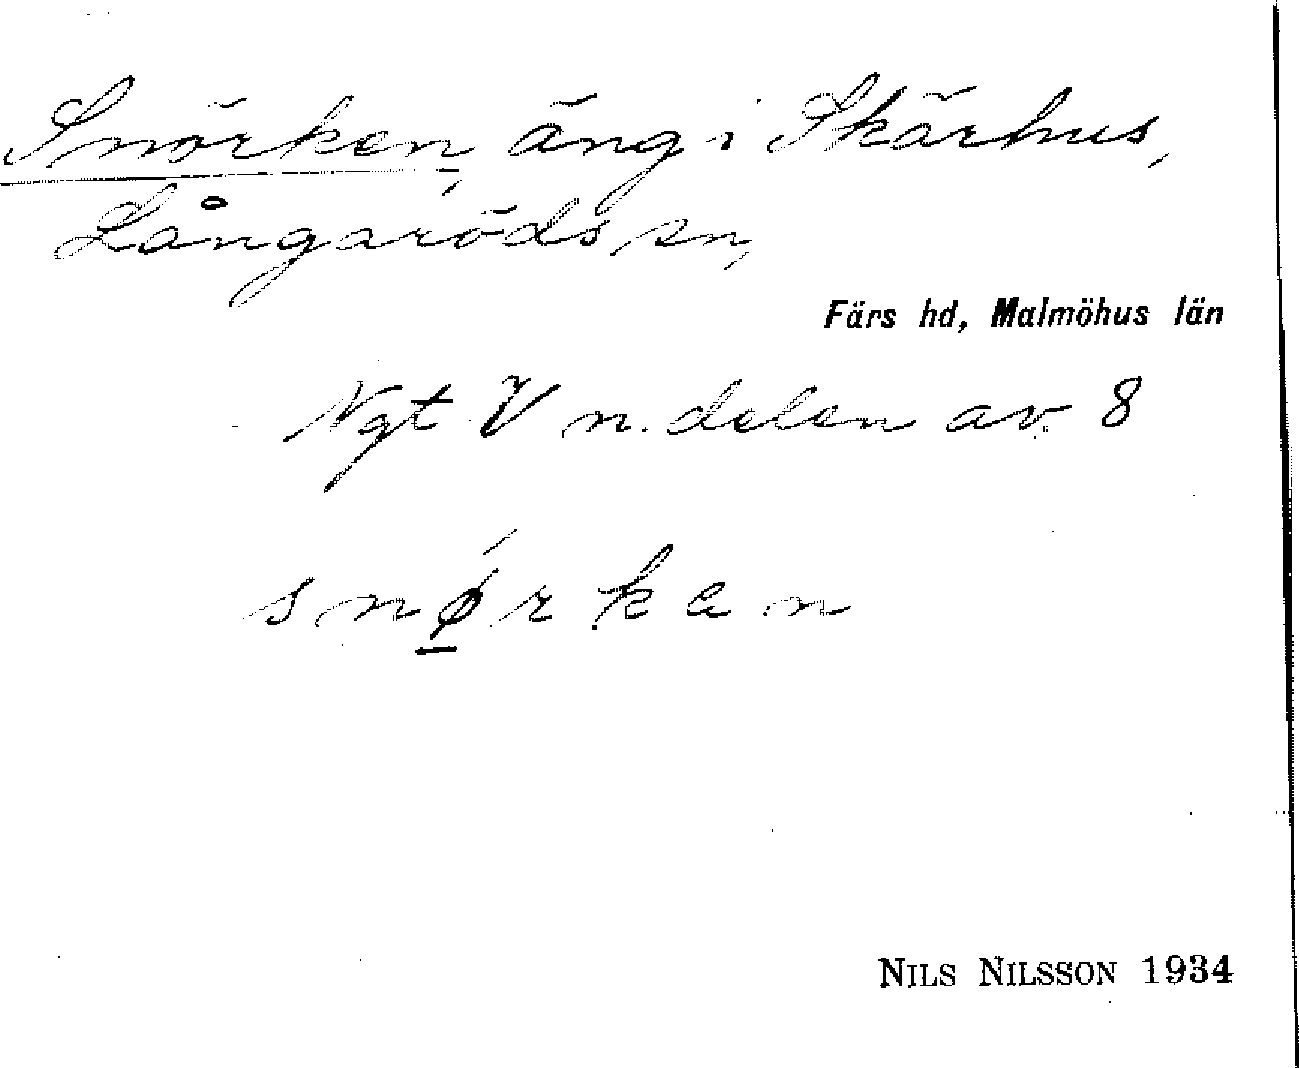 Snörken, äng i Skärhus,
Långaröds sn,
Färs hd, Malmöhus län
Ngt V n. delen av 8
snǿ̱rken
NILS NILSSON 1934